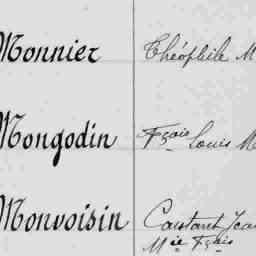 Monnier Théophile M
Mongodin Fçois Louis M
Monvoisin Constant Jean
Mie Fçois